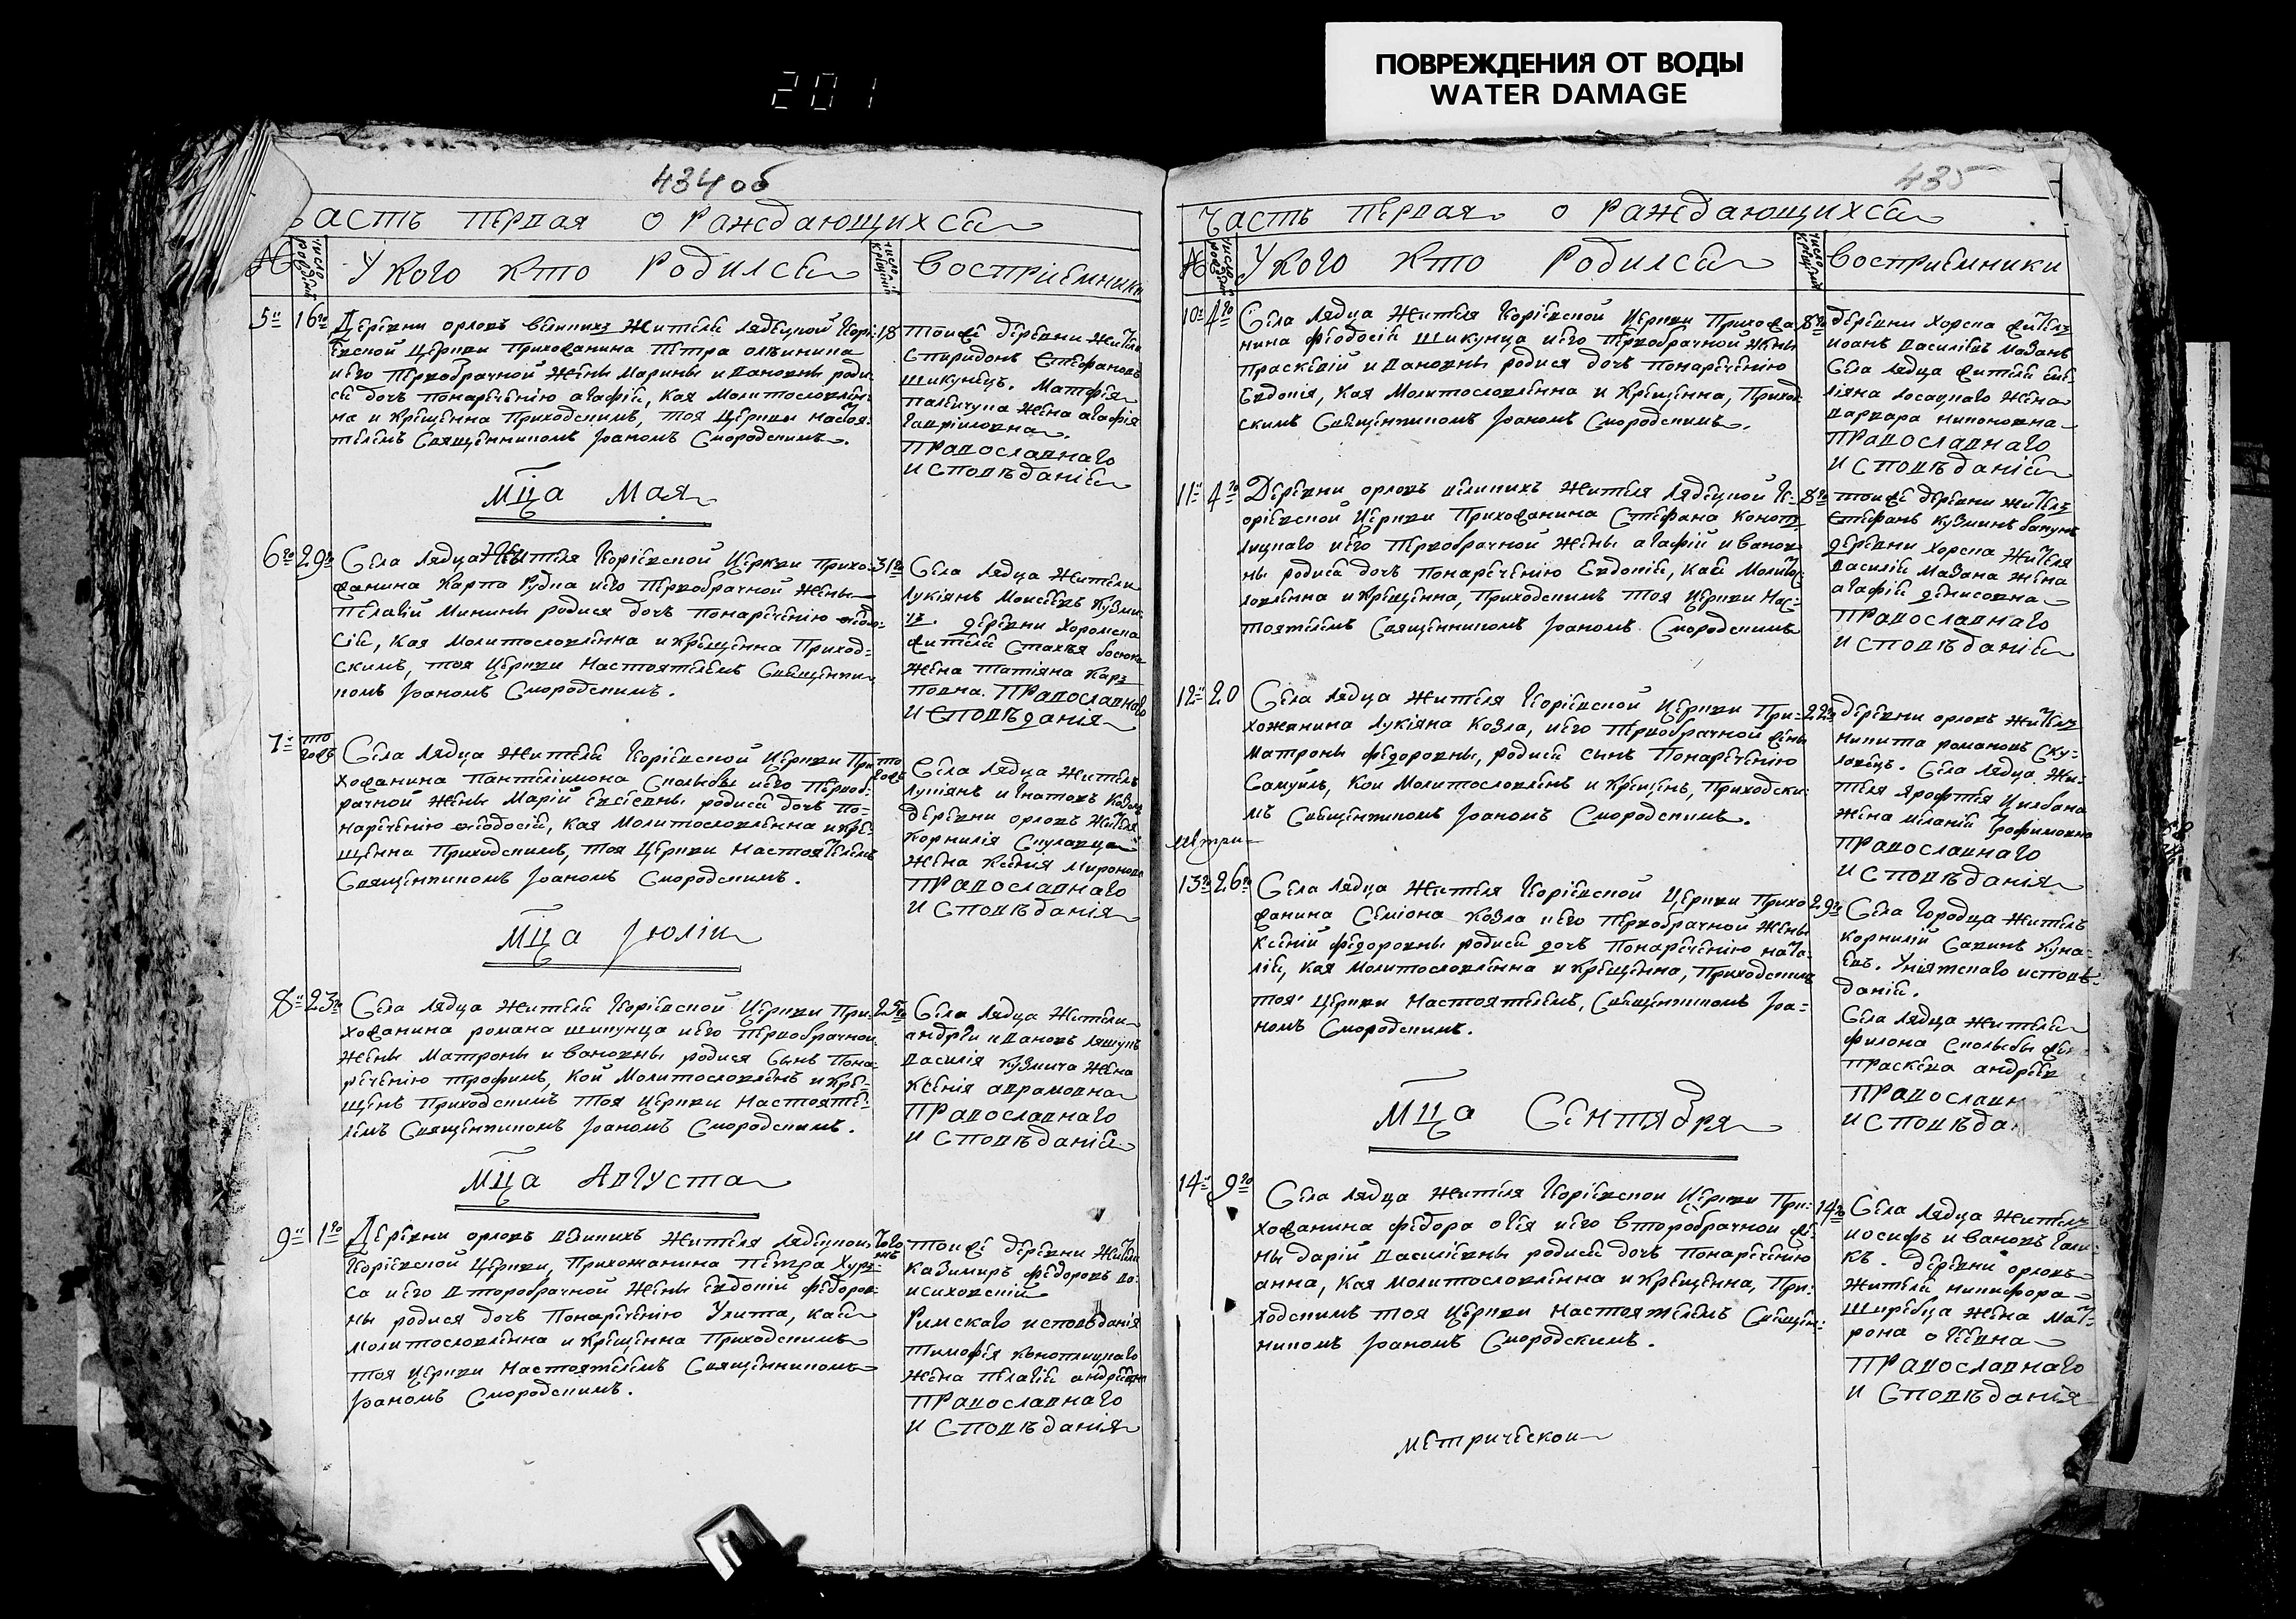 ПОВРЕЖДЕНИЯ ОТ ВОДЫ
WATER DAMAGE
201
434 об
асть первая о раждающихся
№
У кого кто родился
Восприемники
5 16го
Деревни орловъ великихъ жителя лядецкой геор-
евской церкви прихожанина Петра
и его первобрачной жены марины ивановны роди-
ся дочь понареченiю агафiя, кая молитвословлен-
на и крещенна приходскимъ, тоя церкви настоя-
телемъ священникомъ Iоаномъ Смородскимъ.
18
тоеже деревни жители
Спиридонъ Стефановъ
шикунецъ. Матфея
жена агафiя
гаврiиловна.
православнаго
исповѣданiя
Мца Мая
6го 29го
Села лядца жителя георгiевской церкви прихо-
жанина Карпа Рудка и его первобрачной жены
пелагiи минины родися дочь понареченiю феодо-
сiя, кая молитвословленна и крещенна приход-
скимъ, тоя церкви настоятелемъ священни-
комъ Iоаномъ Смородскимъ.
31го
Села лядца жители
лукiянъ Моисеевъ Кузми-
чъ. деревни Хоромска
жителя Стахея
жена татiяна Кар-
повна. православнаго
исповѣданiя
7 тогожъ
Села лядца жителя георгiевской церкви при-
хожанина Пантелимона и его первоб-
рачной жены Марiи евсеевны родися дочь по-
нареченiю феодосiя, кая молитвословленна и кре-
щенна приходскимъ, тоя церкви настоятелемъ
Священникомъ Iоаномъ Смородскимъ.
тогожъ
Села лядца житель
лукiянъ игнатовъ Козелъ
деревни орловъ жителя
Корнилiя Скуловца
жена Ксенiя миронова
православнаго
исповѣданiя
Мца Iюлiя
8 23го
Села лядца жителя георгiевской церкви при-
хожанина романа шикунца и его первобрачной
жены Матроны ивановны родися сынъ пона-
реченiю трофимъ, кой молитвословленъ и кре-
щенъ приходскимъ тоя церкви настояте-
лемъ Священникомъ Iоаномъ Смородскимъ.
25го
Села лядца жители
андрей ивановъ ляшукъ
василiя кузмича жена
Ксенiя аврамовна
православнаго
исповѣданiя
Мца Августа
9 1го
Деревни орловъ великихъ жителя лядецкой
георгiевской церкви, прихожанина Петра
и его второбрачной жены евдокiи федоров-
ны родися дочь понареченiю Улита, кая
молитвословленна и крещенна приходскимъ
тоя церкви настоятелемъ Священникомъ
Iоаномъ Смородскимъ.
тоеже деревни жители
Казимиръ федоровъ

Римскаго исповѣданiя
тимофея коноплицкаго
жена пелагiя андреевна
православнаго
исповѣданiя
435
Часть первая о раждающихся
№
У кого кто родился
Восприемники
10 4го
Села лядца жителя георгiевской церкви прихожа-
нина феодосiя шикунца и его первобрачной жены
праскевiи ивановны родися дочь понареченiю
Евдокiя, кая молитвословленна и крещенна, приход-
скимъ Священникомъ Iоаномъ Смородскимъ.
8го
деревни Хорска житель
иоанъ василiевъ мазанъ
Села лядца жителя еме-
лiяна лосацкаго жена
варвара никоновна
православнаго
исповѣданiя
11 4го
Деревни орловъ великихъ жителя лядецкой ге-
оргiевской церкви прихожанина Стефана коноп-
лицкаго и его первобрачной жены агафiи иванов-
ны родися дочь понареченiю Евдокiя, кая молитвос-
ловленна и крещенна, приходскимъ тоя церкви нас-
тоятелемъ Священникомъ Iоаномъ Смородскимъ
8го
тоеже деревни житель
Стефанъ кузминъ бакунъ
деревни Хорска жителя
василiя мазана жена
агафiя денисовна
православнаго
исповѣданiя
12 20
Села лядца жителя георгiевской церкви при-
хожанина лукiяна Козла, и его первобрачной жены
матроны федоровны, родися сынъ понареченiю
Самуилъ, кои молитвословленъ и крещенъ, приходски-
мъ Священникомъ Iоаномъ Смородскимъ.
22го
деревни орловъ житель
никита романовъ ску-
ловецъ. Села лядца жи-
теля ярофтея
жена меланiя трофимовна
православнаго
исповѣданiя
метри-
13 26го
Села лядца жителя георгiевской церкви прихо-
жанина Семiона козла и его первобрачной жены
Ксенiи федоровны родися дочь понареченiю ната-
лiя, кая молитвословленна и крещенна, приходскимъ
тоя церкви настоятелемъ, священникомъ Iоа-
номъ Смородскимъ.
29го
Села городца житель
корнилiй Савинъ куна-
евъ. Унiятскаго исповѣ-
данiя.
Села лядца жителя
филона
праскева андреев
православн
исповѣда
Мца Сентября
14 9го
Села лядца жителя георгiевской церкви при-
хожанина федора и его второбрачной же-
ны дарiи василiевны родися дочь понареченiю
анна, кая молитвословленна и крещенна, при-
ходскимъ тоя церкви настоятелемъ священ-
никомъ Iоаномъ Смородскимъ.
14го
Села лядца житель
иосифъ ивановъ гали-
къ. деревни орловъ
жителя никифора
жена мат-
рона
православнаго
исповѣданiя
метрической